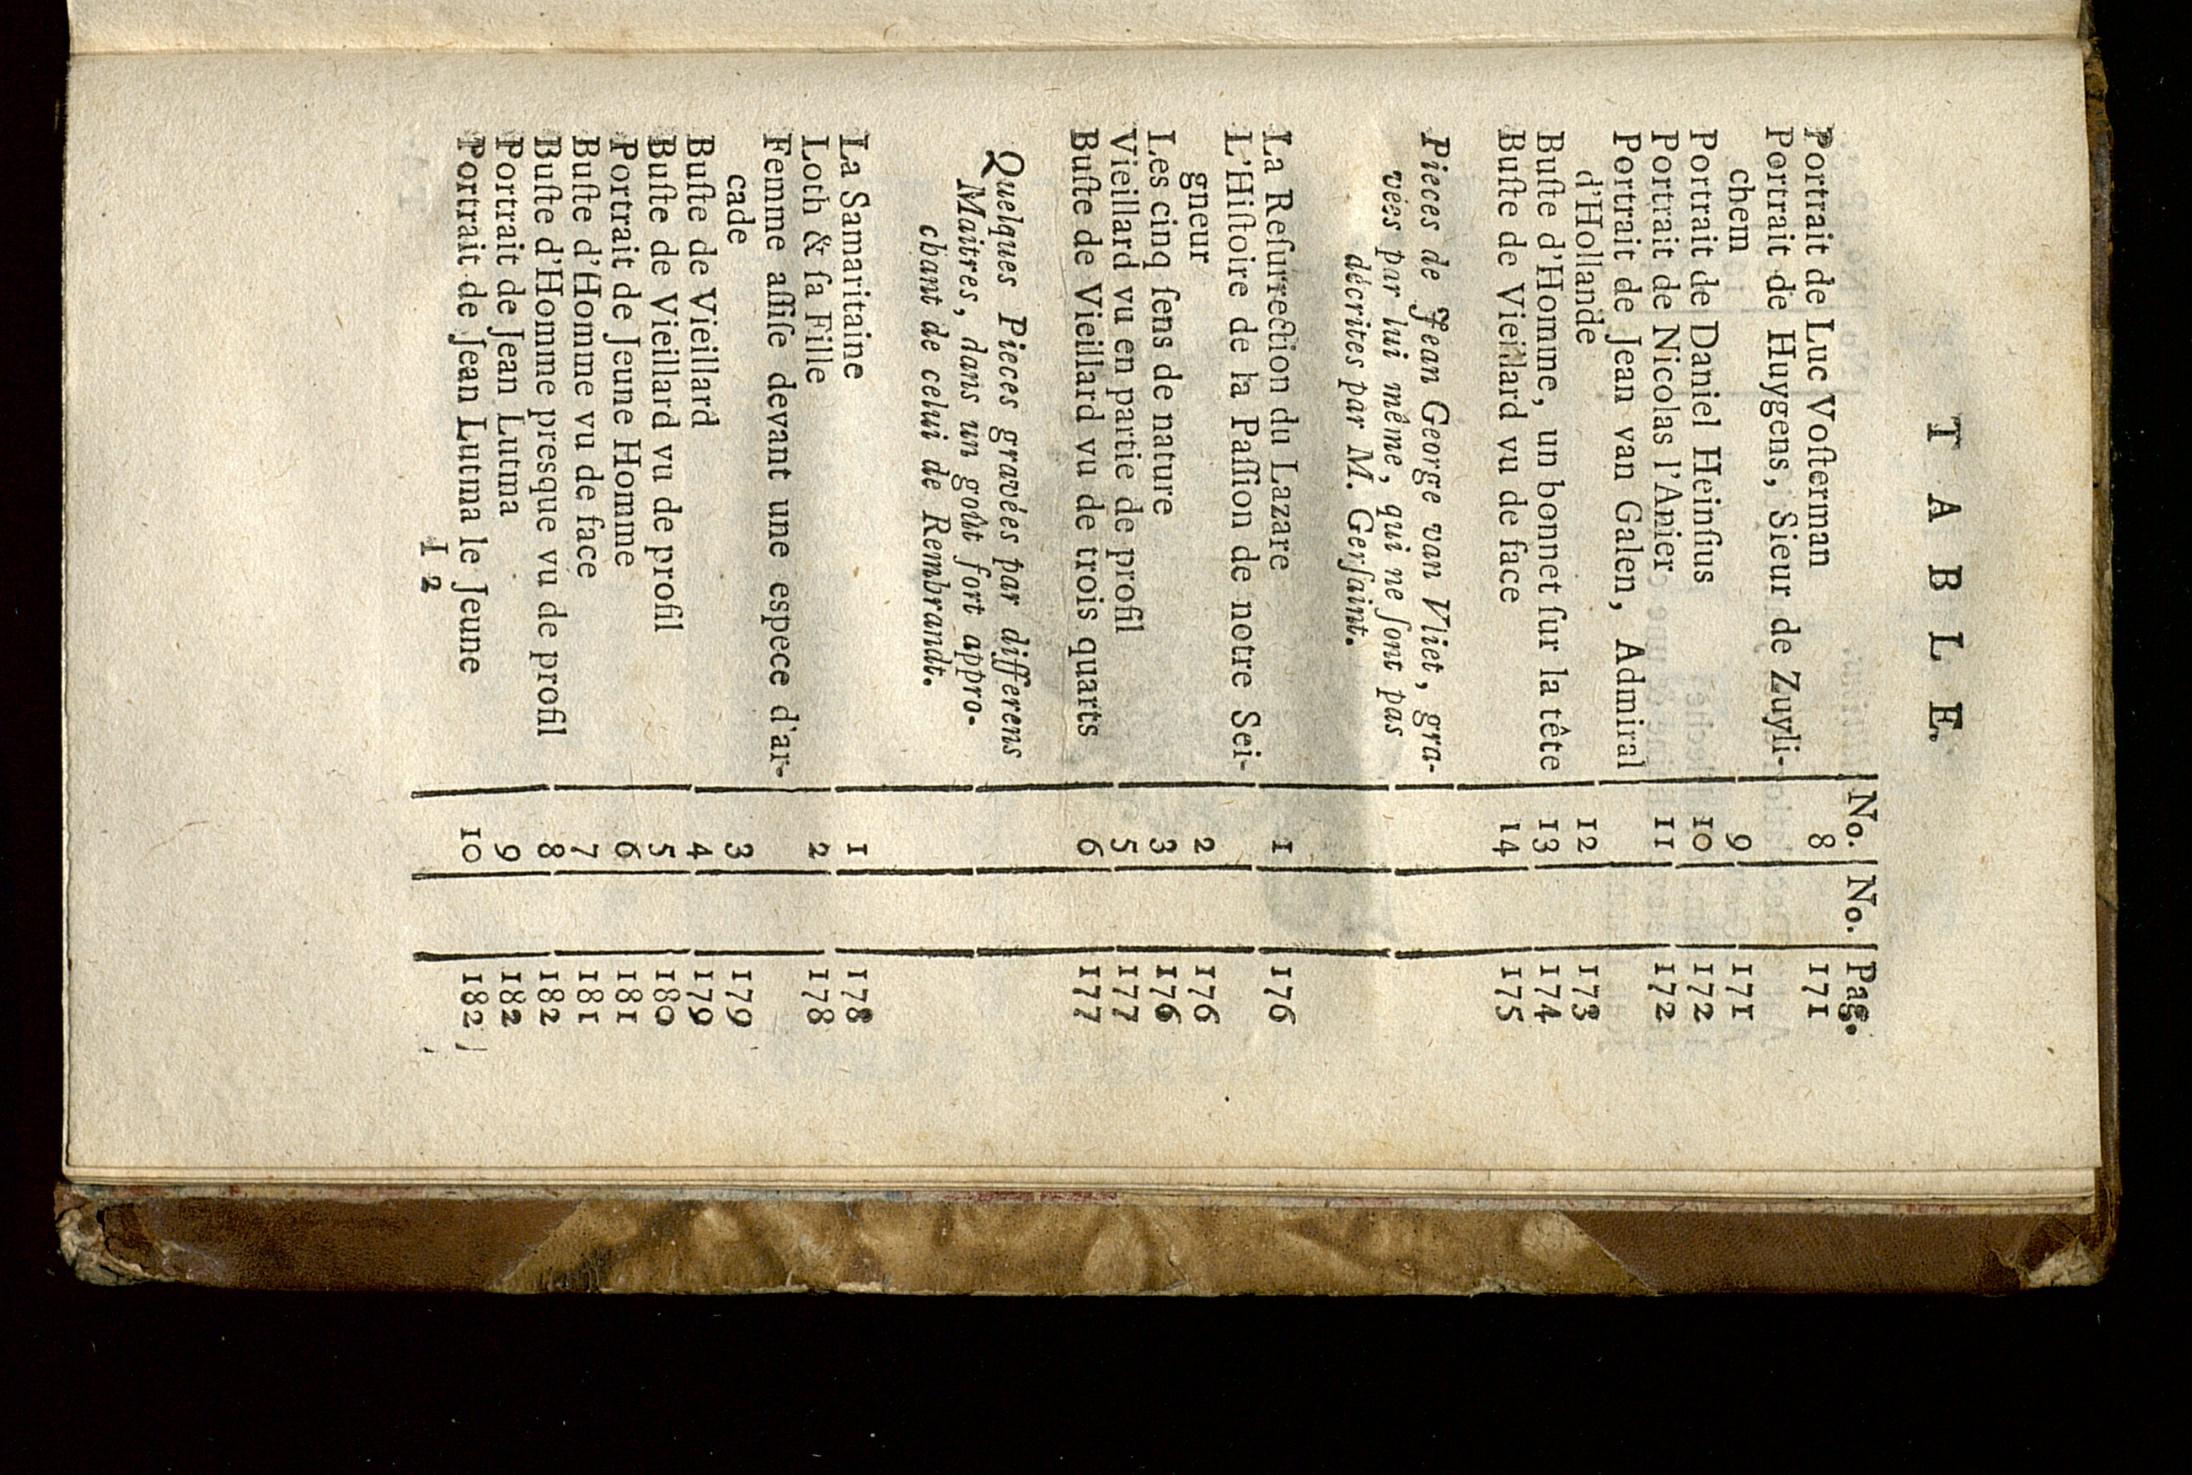 TABLE.
No. | No. | Pag.
Portrait de Luc Voſterman 8 171
Portrait de Huygens, Sieur de Zuyli-
chem 9 171
Portrait de Daniel Heinſius 10 172
Portrait de Nicolas l'Anier 11 172
Portrait de Jean van Galen, Admiral
d'Hollande 12 173
Buſte d'Homme, un bonnet ſur la tête 13 174
Buſte de Vieillard vu de face 14 175
Pieces de Jean George van Vliet, gra-
vées par lui même, qui ne ſont pas
décrites par M. Gerſaint.
La Reſurrection du Lazare 1 176
L'Hiſtoire de la Paſſion de notre Sei-
gneur 2 176
Les cinq ſens de nature 3 176
Vieillard vu en partie de profil 5 177
Buſte de Vieillard vu de trois quarts 6 177
Quelques Pieces gravées par differens
Maitres, dans un goût fort appro-
chant de celui de Rembrandt.
La Samaritaine 1 178
Loth & ſa Fille 2 178
Femme aſſiſe devant une espece d'ar-
cade 3 179
Buſte de Vieillard 4 179
Buſte de Vieillard vu de profil 5 180
Portrait de Jeune Homme 6 181
Buſte d'Homme vu de face 7 181
Buſte d'Homme presque vu de profil 8 182
Portrait de Jean Lutma 9 182
Portrait de Jean Lutma le Jeune 10 182
I 2